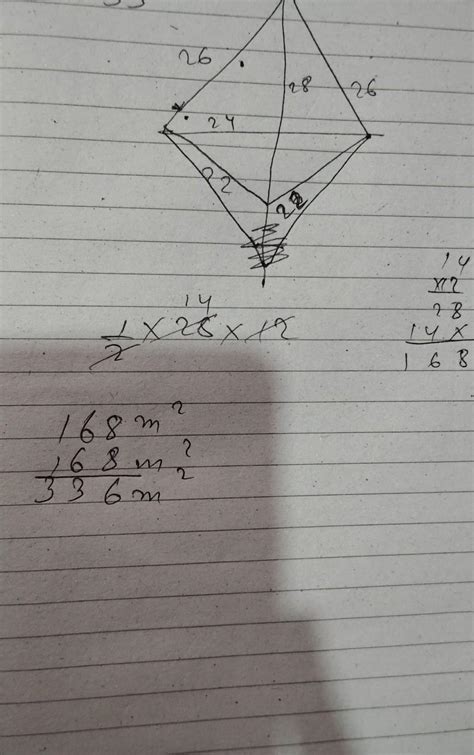 33
26
28
26
24
22
22
1/2 × 28 × 12
14
14
×12
28
14×
168
168m²
168m²
336m²